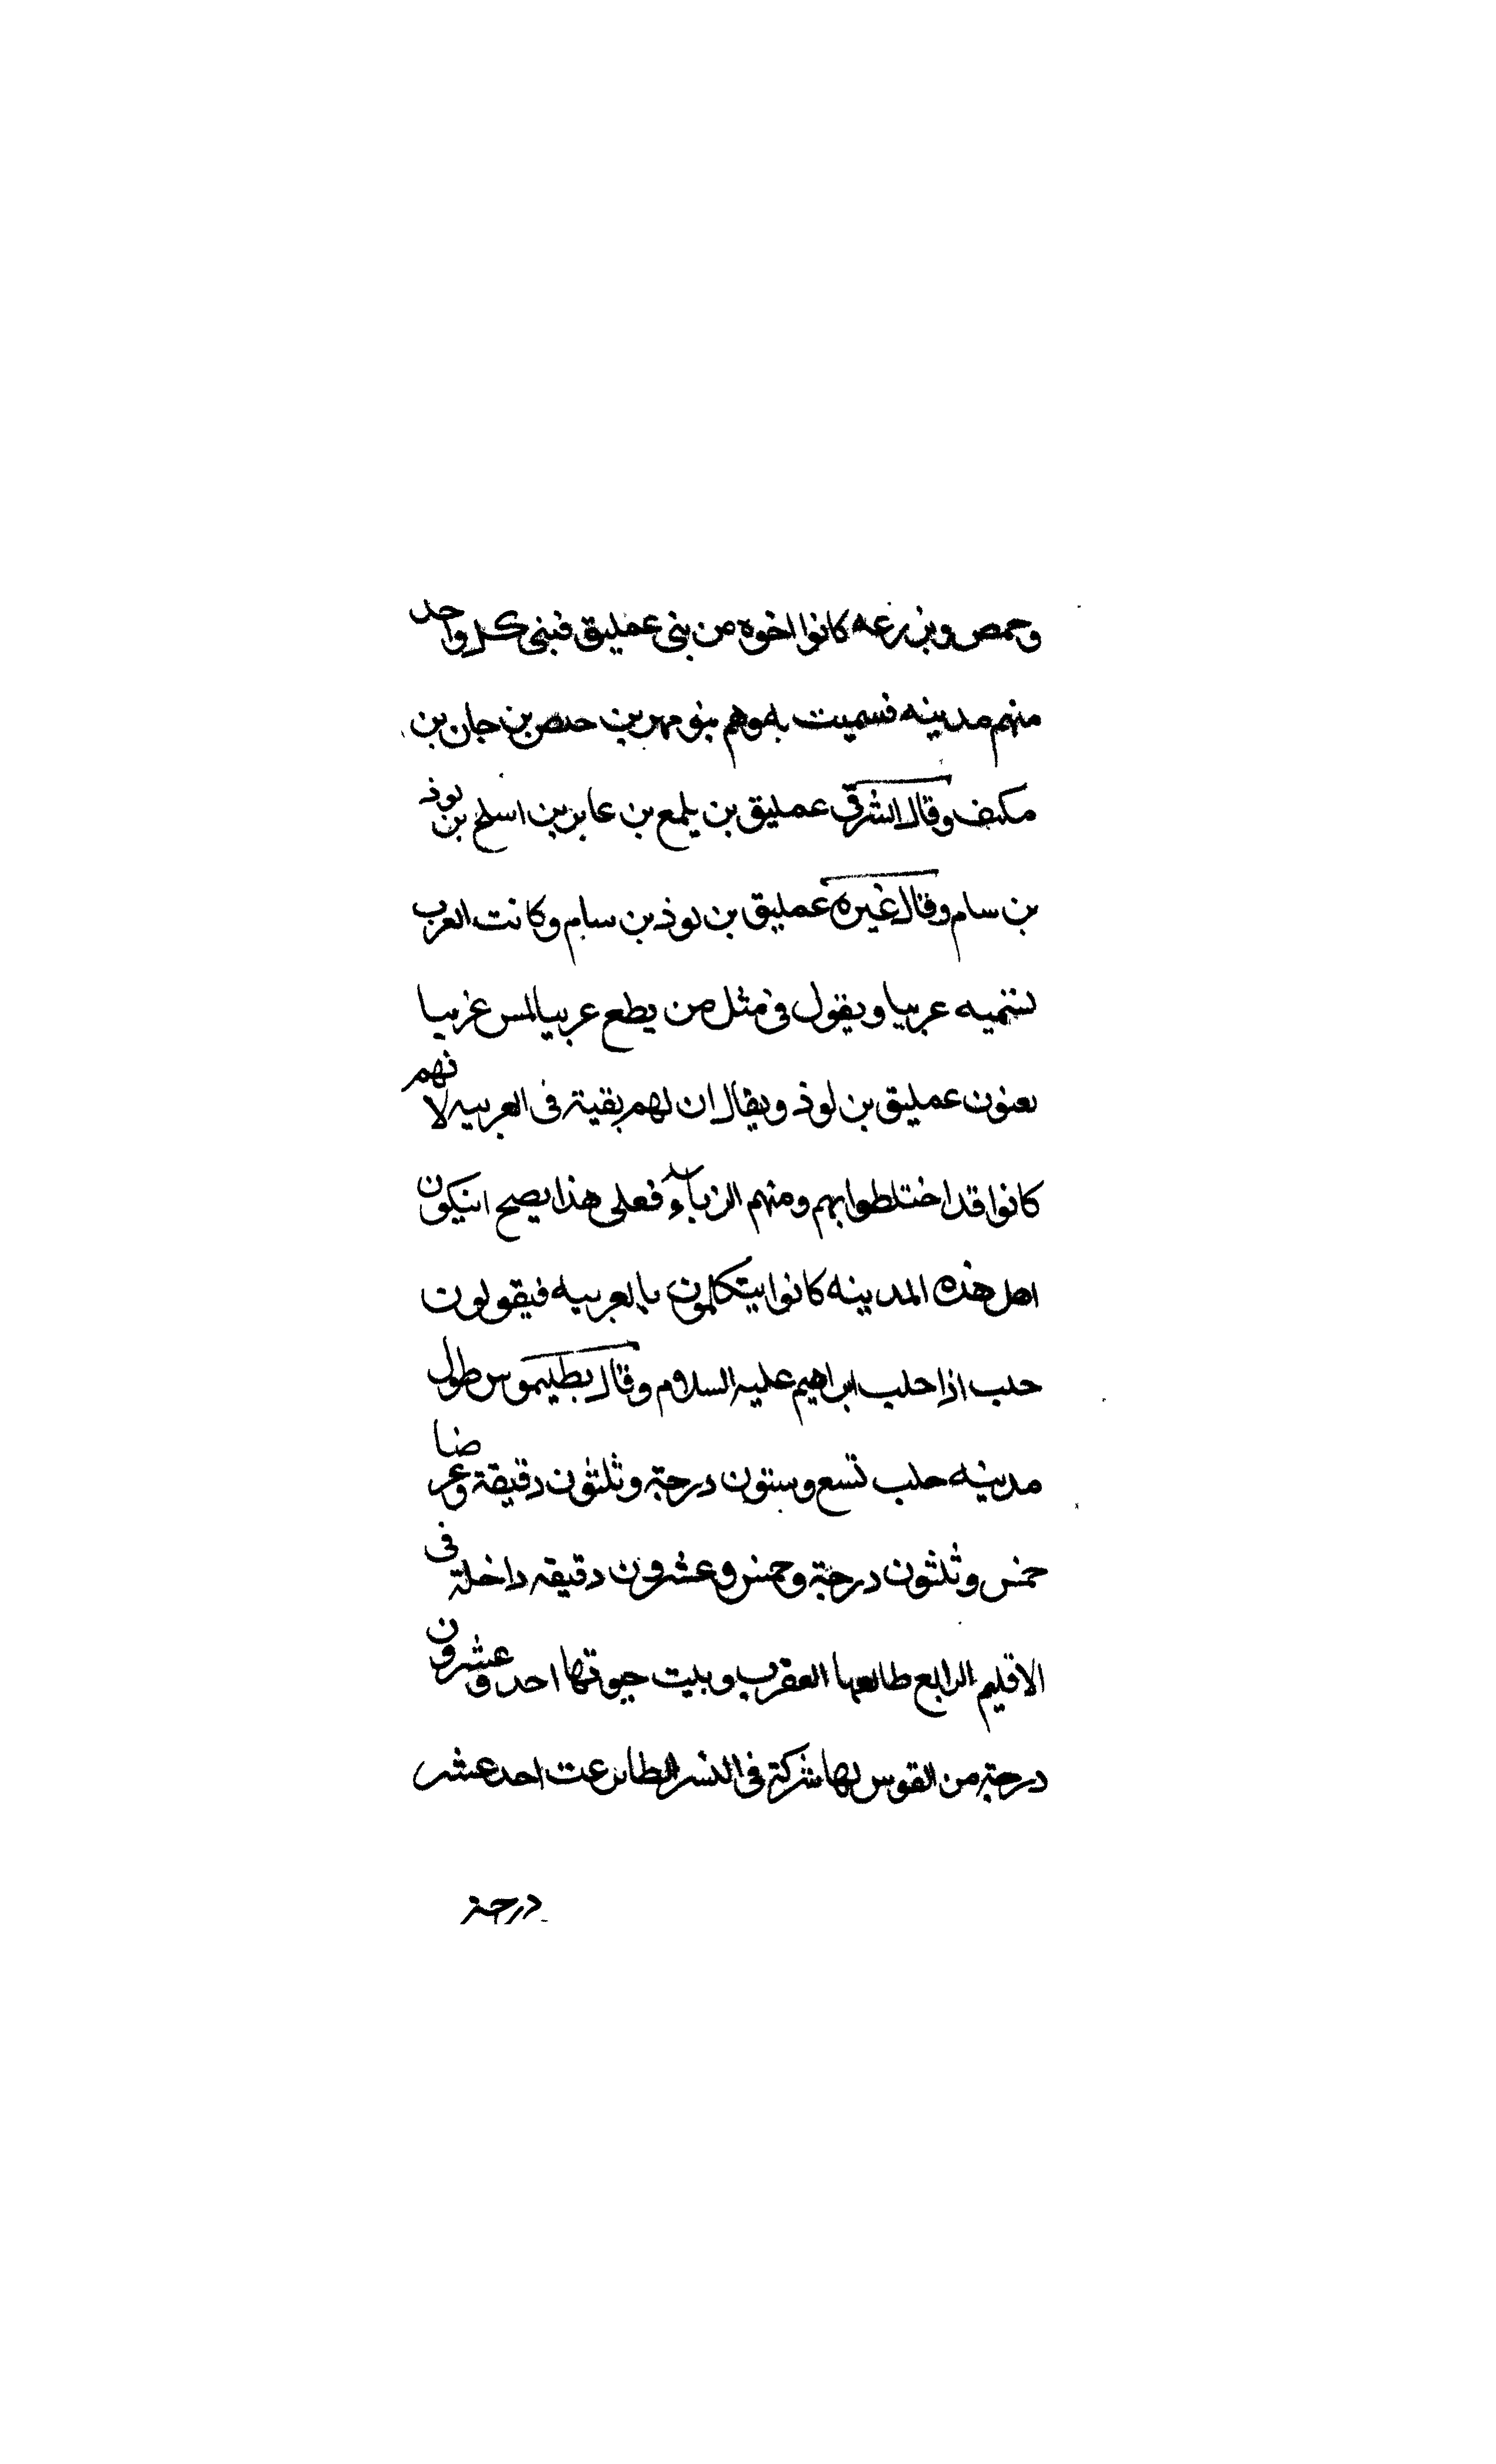 وحمص وبرزعه كانوا اخوه من بنى عمليق فبنى كل واحد
منهم مدينه فسميت به وهم بنو مهر بن حمص بن جان بن
مكنف وقال الشرقى عمليق بن يلمع بن عابر بن اسلح بن لوذ
بن سام وقال غيره عمليق بن لوذ بن سام وكانت العرب
تسميه عريبا ويقول فى مثل من يطع عريبا يمس غريبا
يعنون عمليق بن لوذ ويقال ان لهم بقية فى العربيه لانهم
كانوا قد اختلطوا بهم ومنهم الزباء فعلى هذا يصح ان يكون
اهل هذه المدينه كانوا يتكلمون بالعربيه فيقولون
حلب اذا حلب ابراهيم عليه السلام وقال بطليموس طول
مدينه حلب تسع وستون درجة وثلثون دقيقة وعرضا
خمس وثلثون درجة وخمس وعشرون دقيقه داخلة فى
الاقليم الرابع طالعها العقرب وبيت حيوتها احد وعشرون
درجة من القوس لها شركة فى النسر الطاير تحت احد عشر
درجة